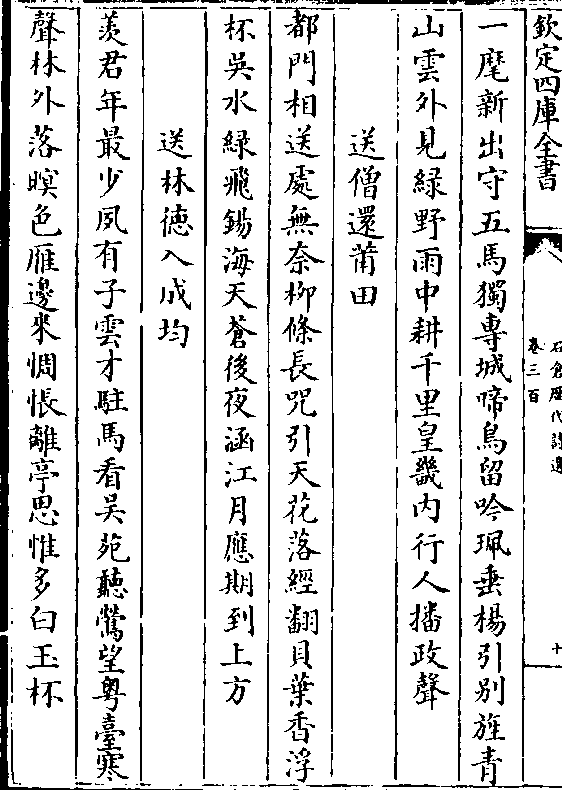 欽定四庫全書
石倉歷代詩選
卷三百
十
一麾新出守五馬獨專城啼鳥留吟珮垂楊引别旌青
山雲外見緑野雨中耕千里皇畿内行人播政聲
送僧還莆田
都門相送處無奈柳條長咒引天花落經翻貝葉香浮
杯吳水緑飛錫海天蒼後夜涵江月應期到上方
送林徳入成均
羡君年最少夙有子雲才駐馬看吴苑聽鶯望粤臺寒
聲林外落暝色雁邊來惆悵離亭思惟多白玉杯